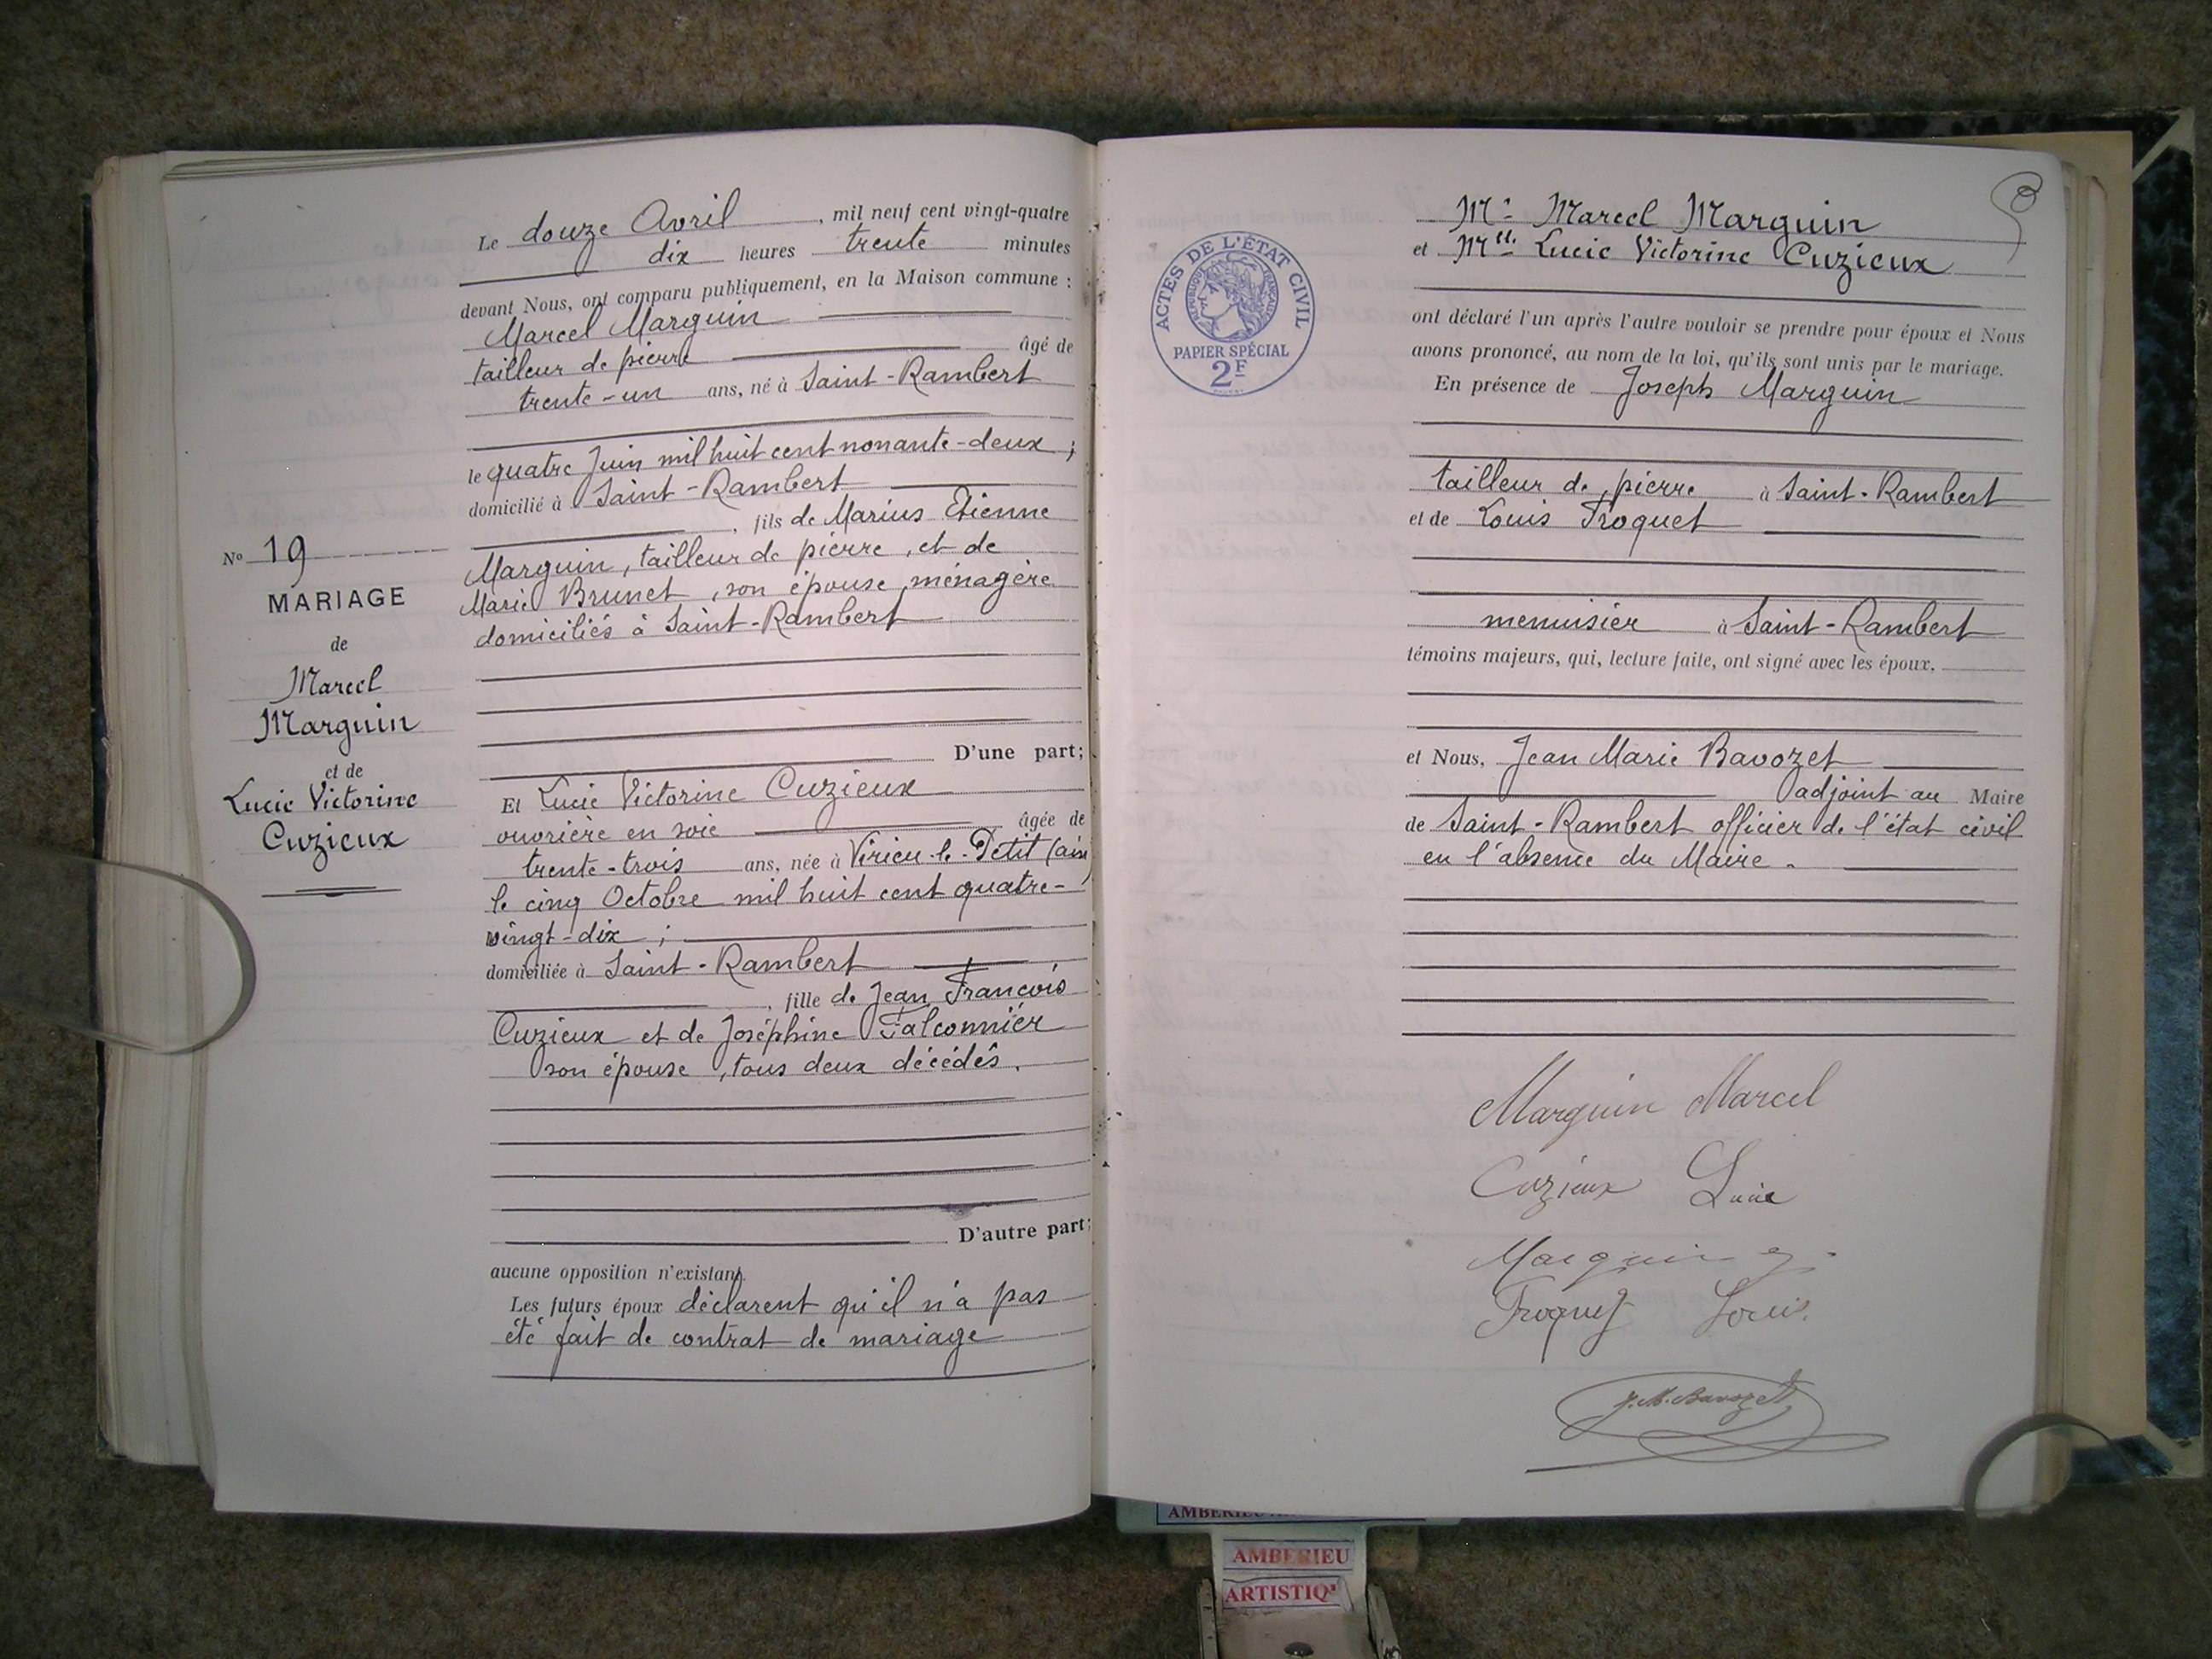 Le douze Avril, mil neuf cent vingt-quatre
dix heures trente minutes
devant Nous, ont comparu publiquement, en la Maison commune :
Marcel Marguin
tailleur de pierre âgé de
trente-un ans, né à Saint-Rambert
le quatre Juin mil huit cent nonante-deux ;
domicilié à Saint-Rambert
, fils de Marius Etienne
Marguin, tailleur de pierre, et de
Marie Brunet, son épouse, ménagère
domiciliés à Saint-Rambert
D'une part;
No 19
MARIAGE
de
Marcel
Marguin
et de
Lucie Victorine
Cuzieux
Et Lucie Victorine Cuzieux
ouvrière en soie âgée de
trente-trois ans, née à Virieu-le-Petit (ain)
le cinq Octobre mil huit cent quatre-
vingt-dix ;
domiciliée à Saint-Rambert
, fille de Jean François
Cuzieux et de Joséphine Falconnier
son épouse, tous deux décédés.
D'autre part;
aucune opposition n'existant.
Les futurs époux déclarent qu'il n'a pas
été fait de contrat de mariage
ACTES DE L'ÉTAT CIVIL
RÉPUBLIQUE FRANÇAISE
PAPIER SPÉCIAL
2F
Mr Marcel Marguin
et Mlle Lucie Victorine Cuzieux
ont déclaré l'un après l'autre vouloir se prendre pour époux et Nous
avons prononcé, au nom de la loi, qu'ils sont unis par le mariage.
En présence de Joseph Marguin
tailleur de pierre à Saint-Rambert
et de Louis Troquet
menuisier à Saint-Rambert
témoins majeurs, qui, lecture faite, ont signé avec les époux,
et Nous, Jean Marie Bavozet
adjoint au Maire
de Saint-Rambert officier de l'état civil
en l'absence du Maire.
Marguin Marcel
Cuzieux Lucie
Marguin
Troquet Louis.
J. M. Bavozet
AMBERIEU
AMBERIEU
ARTISTIQ